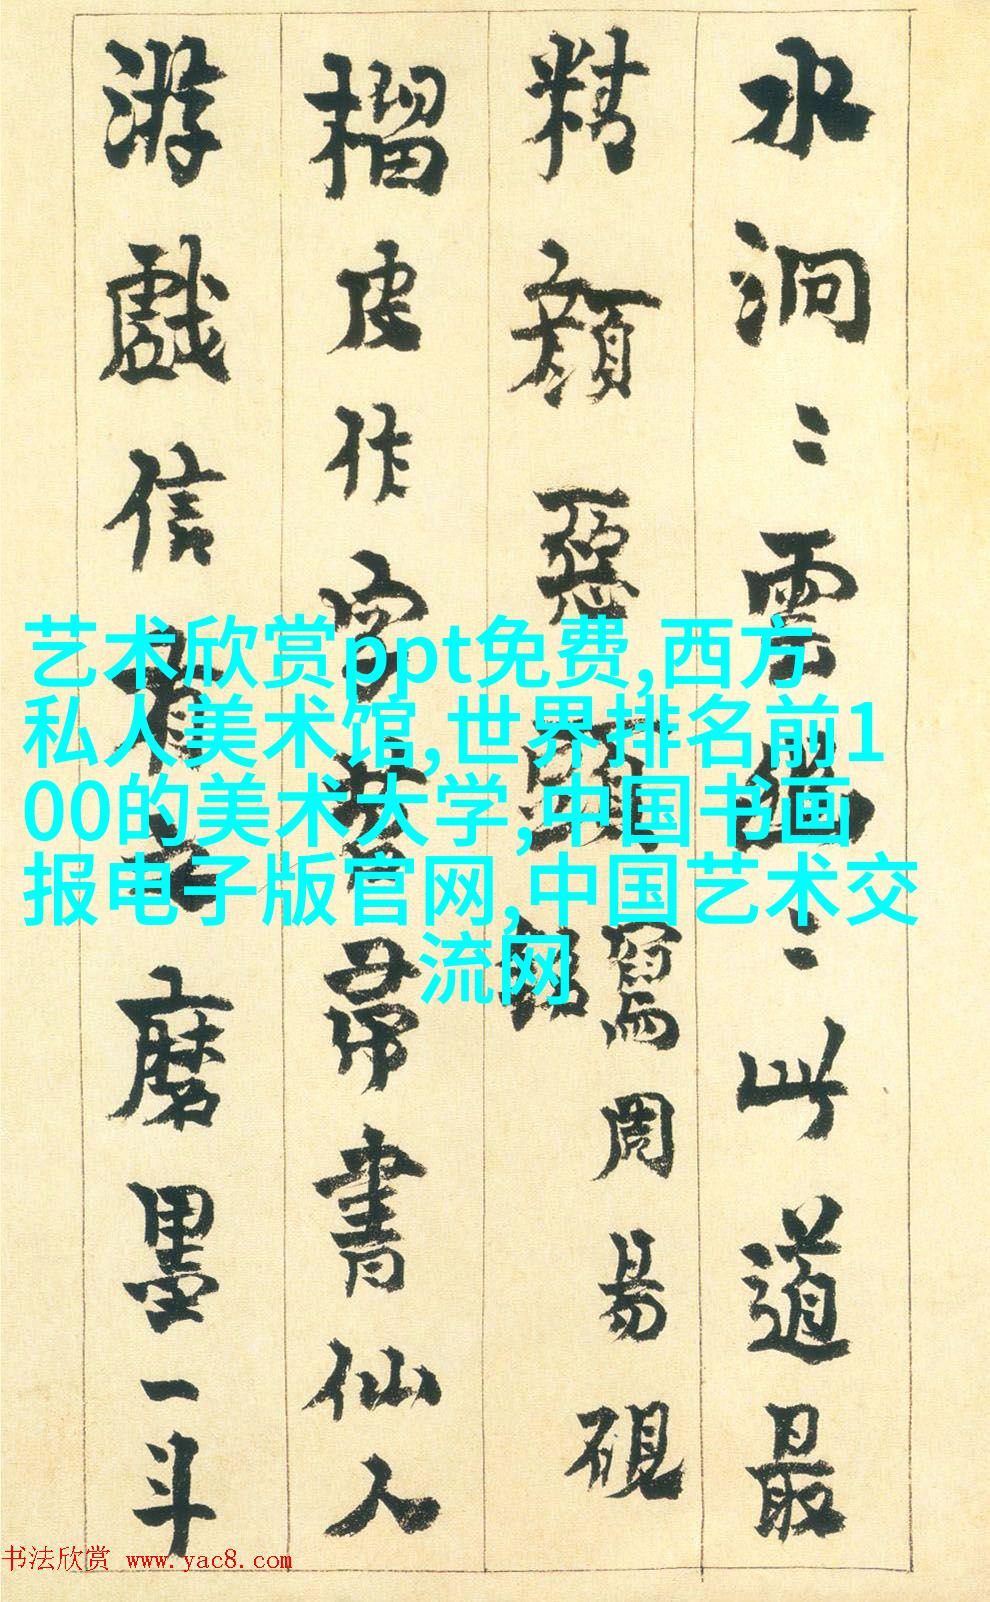 水洞〻雲〻此道最
精顏惡頭
寫周易硯
榴皮作字苕帚書仙人
游戲信有之磨墨一斗
艺术欣赏ppt免费,西方
私人美术馆,世界排名前1
00的美术大学,中国书画
报电子版官网,中国艺术交
流网
书法欣赏 www.yac8.com